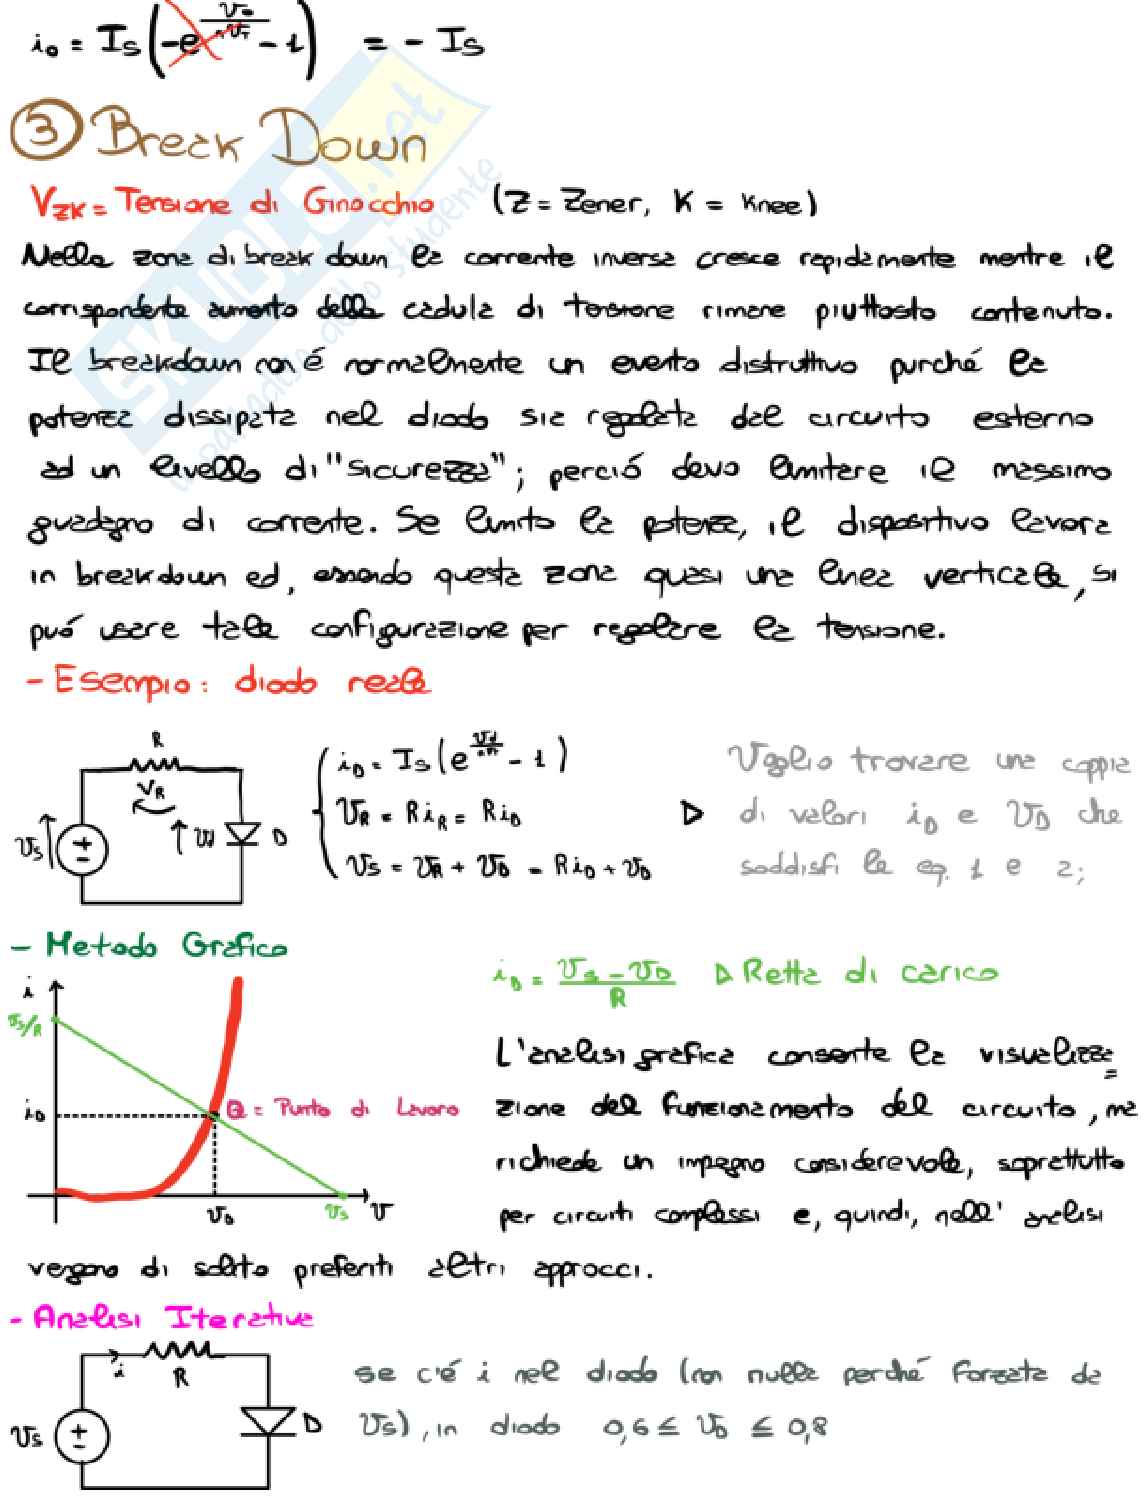 i_D = I_S (-e^{V_D/nV_T} - 1) = - I_S
③ Break Down
V_ZK = Tensione di Ginocchio (Z = Zener, K = Knee)
Nella zona di break down la corrente inversa cresce rapidamente mentre il
corrispondente aumento della caduta di tensione rimane piuttosto contenuto.
Il breakdown non é normalmente un evento distruttivo purché la
potenza dissipata nel diodo sia regolata dal circuito esterno
ad un livello di "sicurezza"; perció devo limitare il massimo
guadagno di corrente. Se limito la potenza, il dispositivo lavora
in breakdown ed, essendo questa zona quasi una linea verticale, si
puó usare tale configurazione per regolare la tensione.
- Esempio: diodo reale
R
V_R
V_S
D
i_D = I_S (e^{V_d/nV_T} - 1)
V_R = R i_R = R i_D
V_S = V_R + V_D = R i_D + V_D
Voglio trovare una coppia
di valori i_D e V_D che
soddisfi le eq. 1 e 2;
- Metodo Grafico
i
V_S/R
i_D
Q = Punto di Lavoro
V_D
V_S
V
i_D = (V_S - V_D)/R ▷ Retta di carico
L'analisi grafica consente la visualizza=
zione del funzionamento del circuito, ma
richiede un impegno considerevole, soprattutto
per circuiti complessi e, quindi, nell' analisi
vengono di solito preferiti altri approcci.
- Analisi Iterativa
i
R
V_S
D
se c'é i nel diodo (non nulla perché forzata da
V_S), in diodo 0,6 ≤ V_D ≤ 0,8
SKUOLA.net
il paradiso dello studente